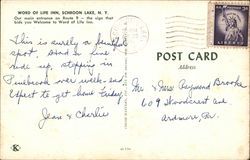 WORD OF LIFE INN, SCHROON LAKE, N. Y.
Our main entrance on Route 9 - the sign that
bids you Welcome to Word of Life Inn.
This is surely a beautiful
spot. Had a fine
ride up, stopping in
Pembrook over week-end.
Expect to get home Friday.
Jean & Charlie
POST CARD
Address
Mr & Mrs Raymond Brooks
609 Woodcrest Ave
Ardmore, Pa.
LIBERTY
K